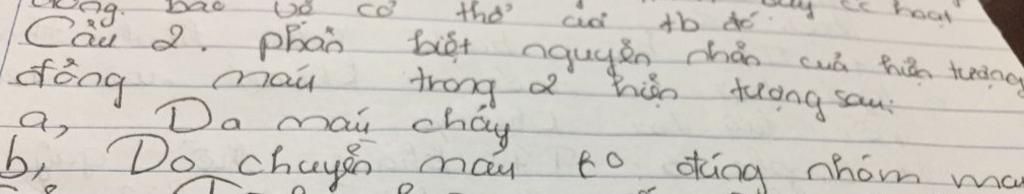 bảo vệ cơ thở của tb đó.
Câu 2. phân biệt nguyên nhân của hiện tượng
đông máu trong 2 hiện tượng sau:
a, Da máu chảy
b, Do chuyền máu ko đúng nhóm